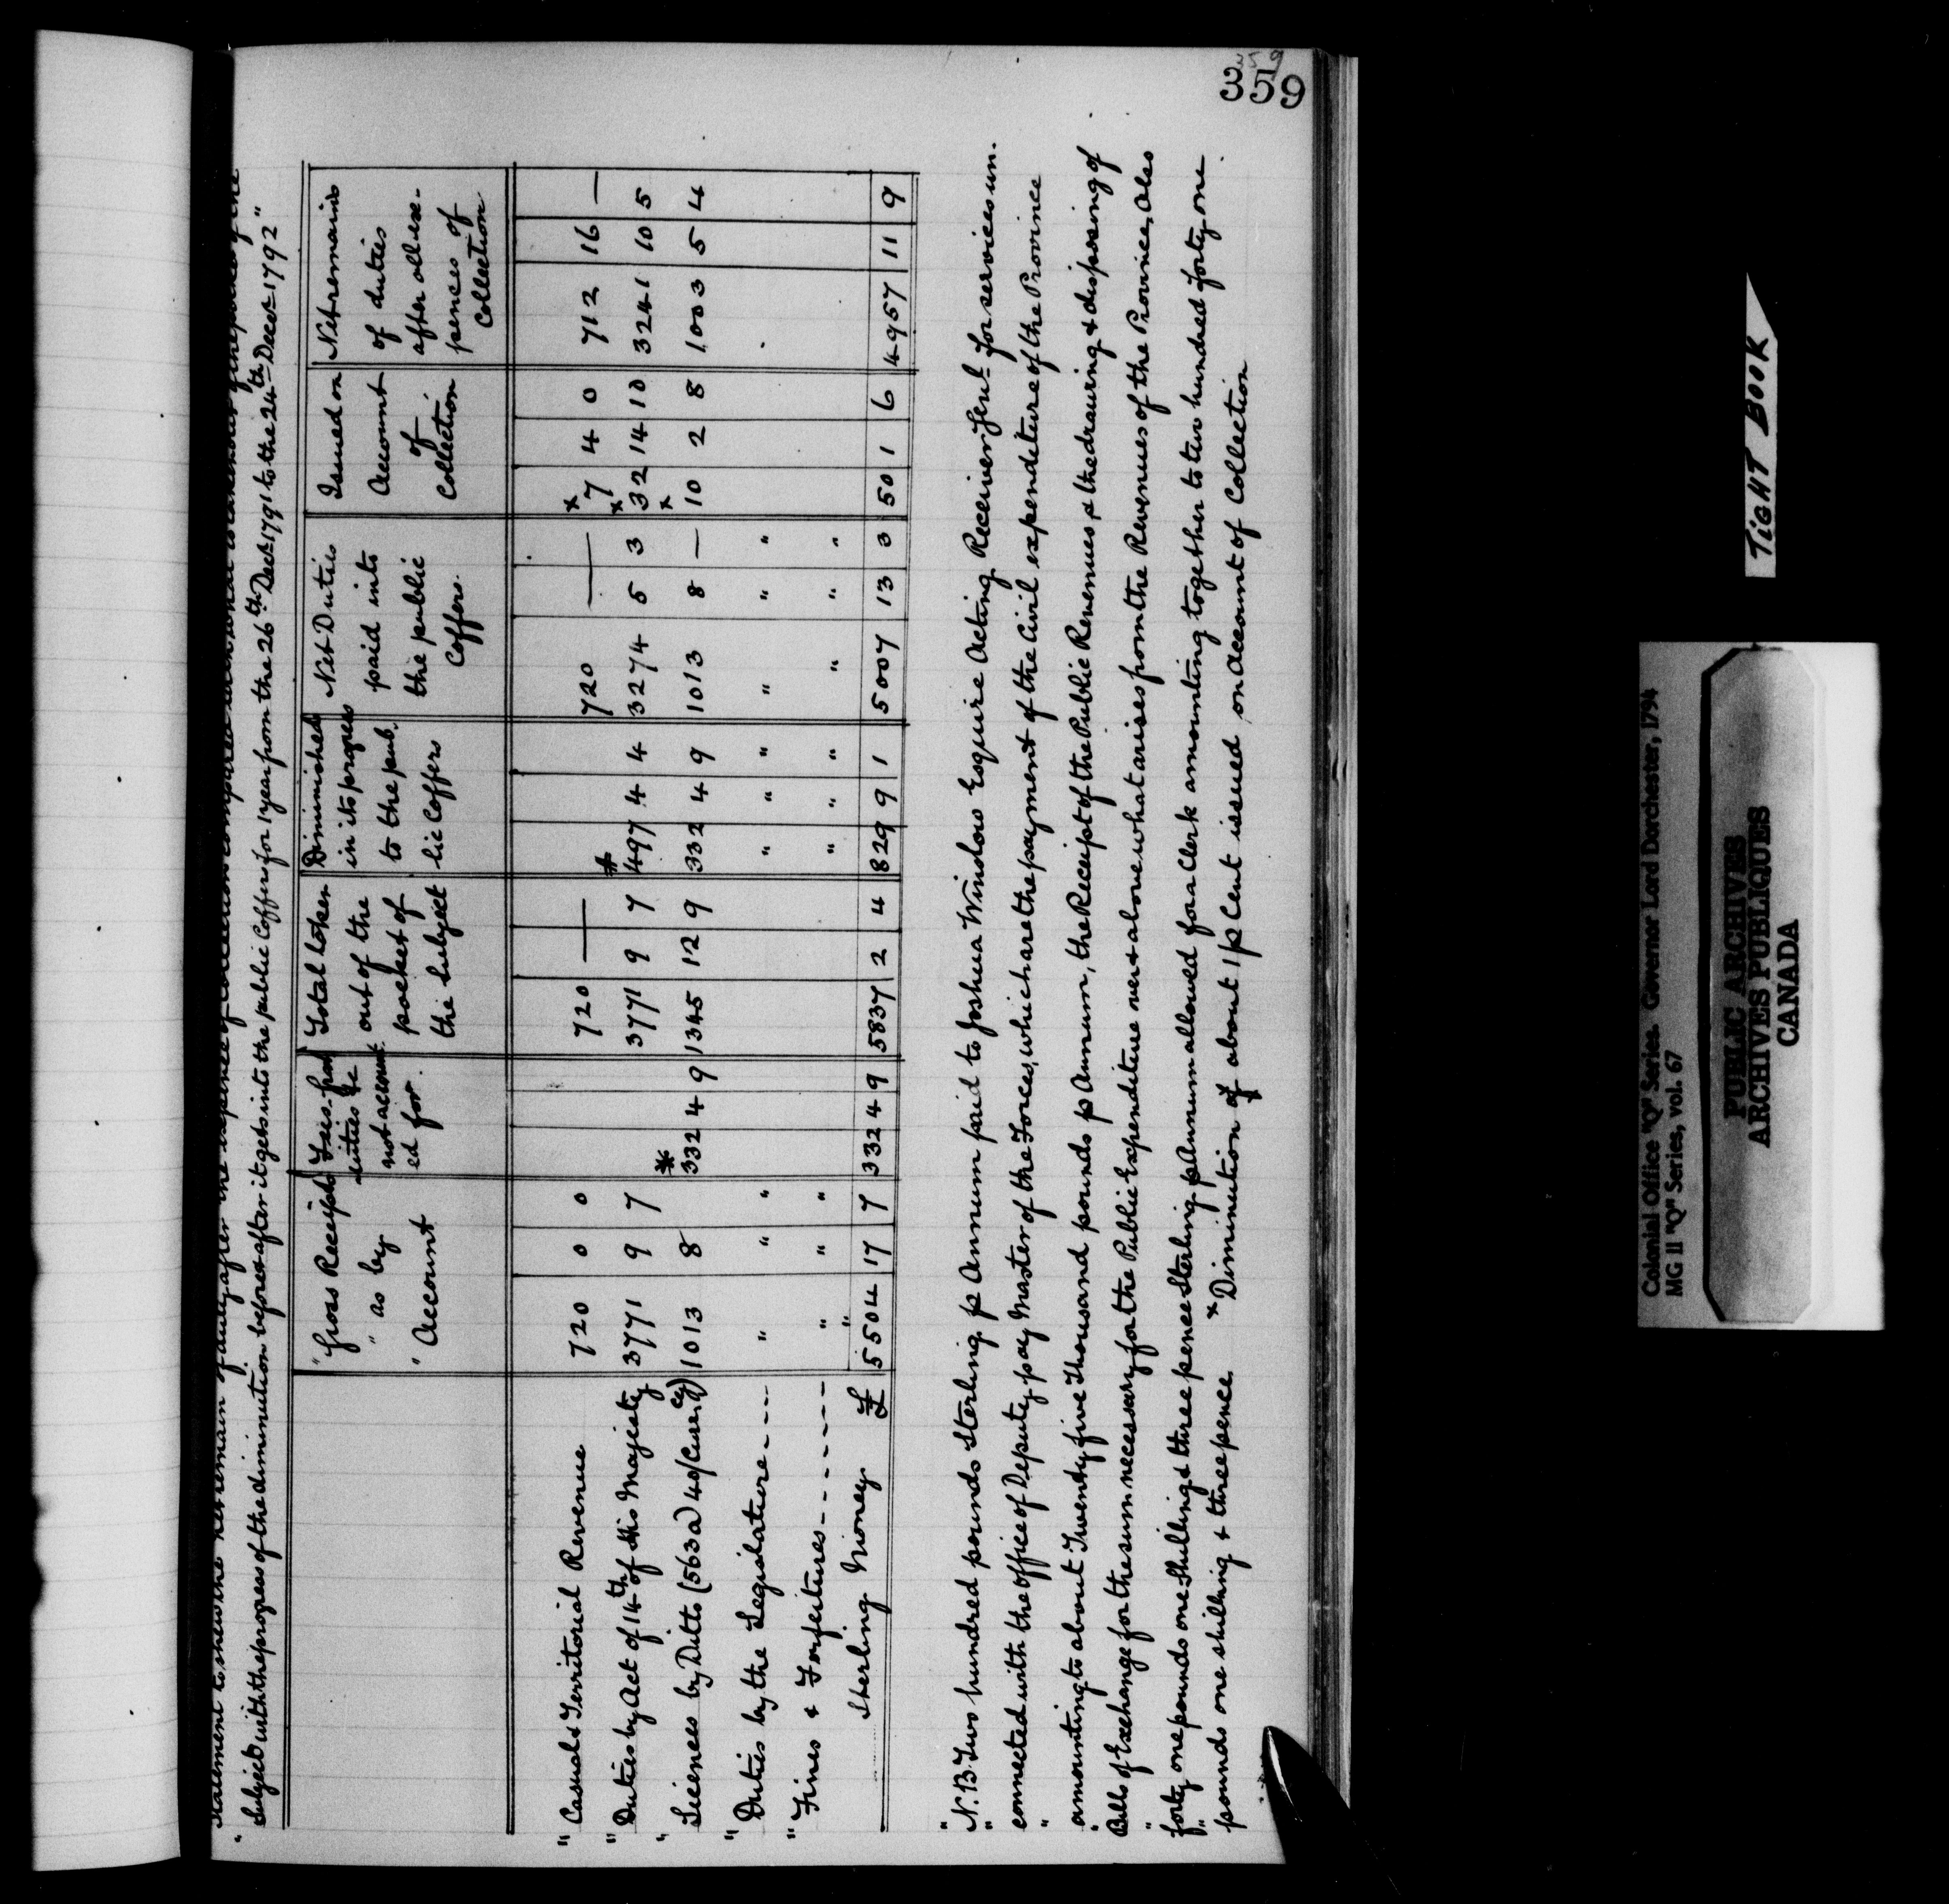 359
359
Statement to shew the Net remain of duty after the expence of Collection
" Subject with the progress of the diminution before & after it gets into the public Coffers for 1 year from the 26th Decr 1791 to the 24th Decr 1792 "
" Gross Receipts " as by " Account | Licences &c not account- ed for. | Total taken out of the pocket of the Subject | Diminished in its progress to the pub- lic Coffers | Net Duties paid into the public Coffers. | Issued on Account of Collection | Net remains of duties after all ex- pences of Collection
" Casual & Territorial Revenue 720 0 0 | | 720 — — | | 720 — — | x 7 4 0 | 712 16 —
" Duties by Act of 14th of His Majesty 3771 9 7 | | 3771 9 7 | * 497 4 4 | 3274 5 3 | x 32 14 10 | 3241 10 5
" Licences by Ditto (563 a 40/ Curr cy) 1013 8 | * 332 4 9 | 1345 12 9 | 332 4 9 | 1013 8 — | x 10 2 8 | 1003 5 4
" Duties by the Legislature - - - " " " | | | " " " | " " "
" Fines & Forfeitures - - - - - - - " " " | | | " " " | " " "
Sterling Money. £ 5504 17 7 | 332 4 9 | 5837 2 4 | 829 9 1 | 5007 13 3 | 50 1 6 | 4957 11 9
" N.B. Two hundred pounds Sterling p Annum paid to Joshua Winslow Esquire Acting Receiver Genl for services un-
" connected with the office of Deputy pay Master of the Forces, which are the payment of the Civil expenditure of the Province
" amounting to about Twenty five Thousand pounds p Annum, the Receipt of the Public Revenues, & the drawing & disposing of
" Bills of Exchange for the sum necessary for the Public Expenditure over & above what arises from the Revenues of the Province, Also
" forty one pounds one Shilling & three pence Sterling p Annum allowed for a Clerk amounting together to two hundred forty one
" pounds one shilling & three pence. x Diminution of about 1 p Cent issued on Account of Collection
TIGHT BOOK
Colonial Office "Q" Series. Governor Lord Dorchester, 1794
MG 11 "Q" Series, vol. 67
PUBLIC ARCHIVES
ARCHIVES PUBLIQUES
CANADA